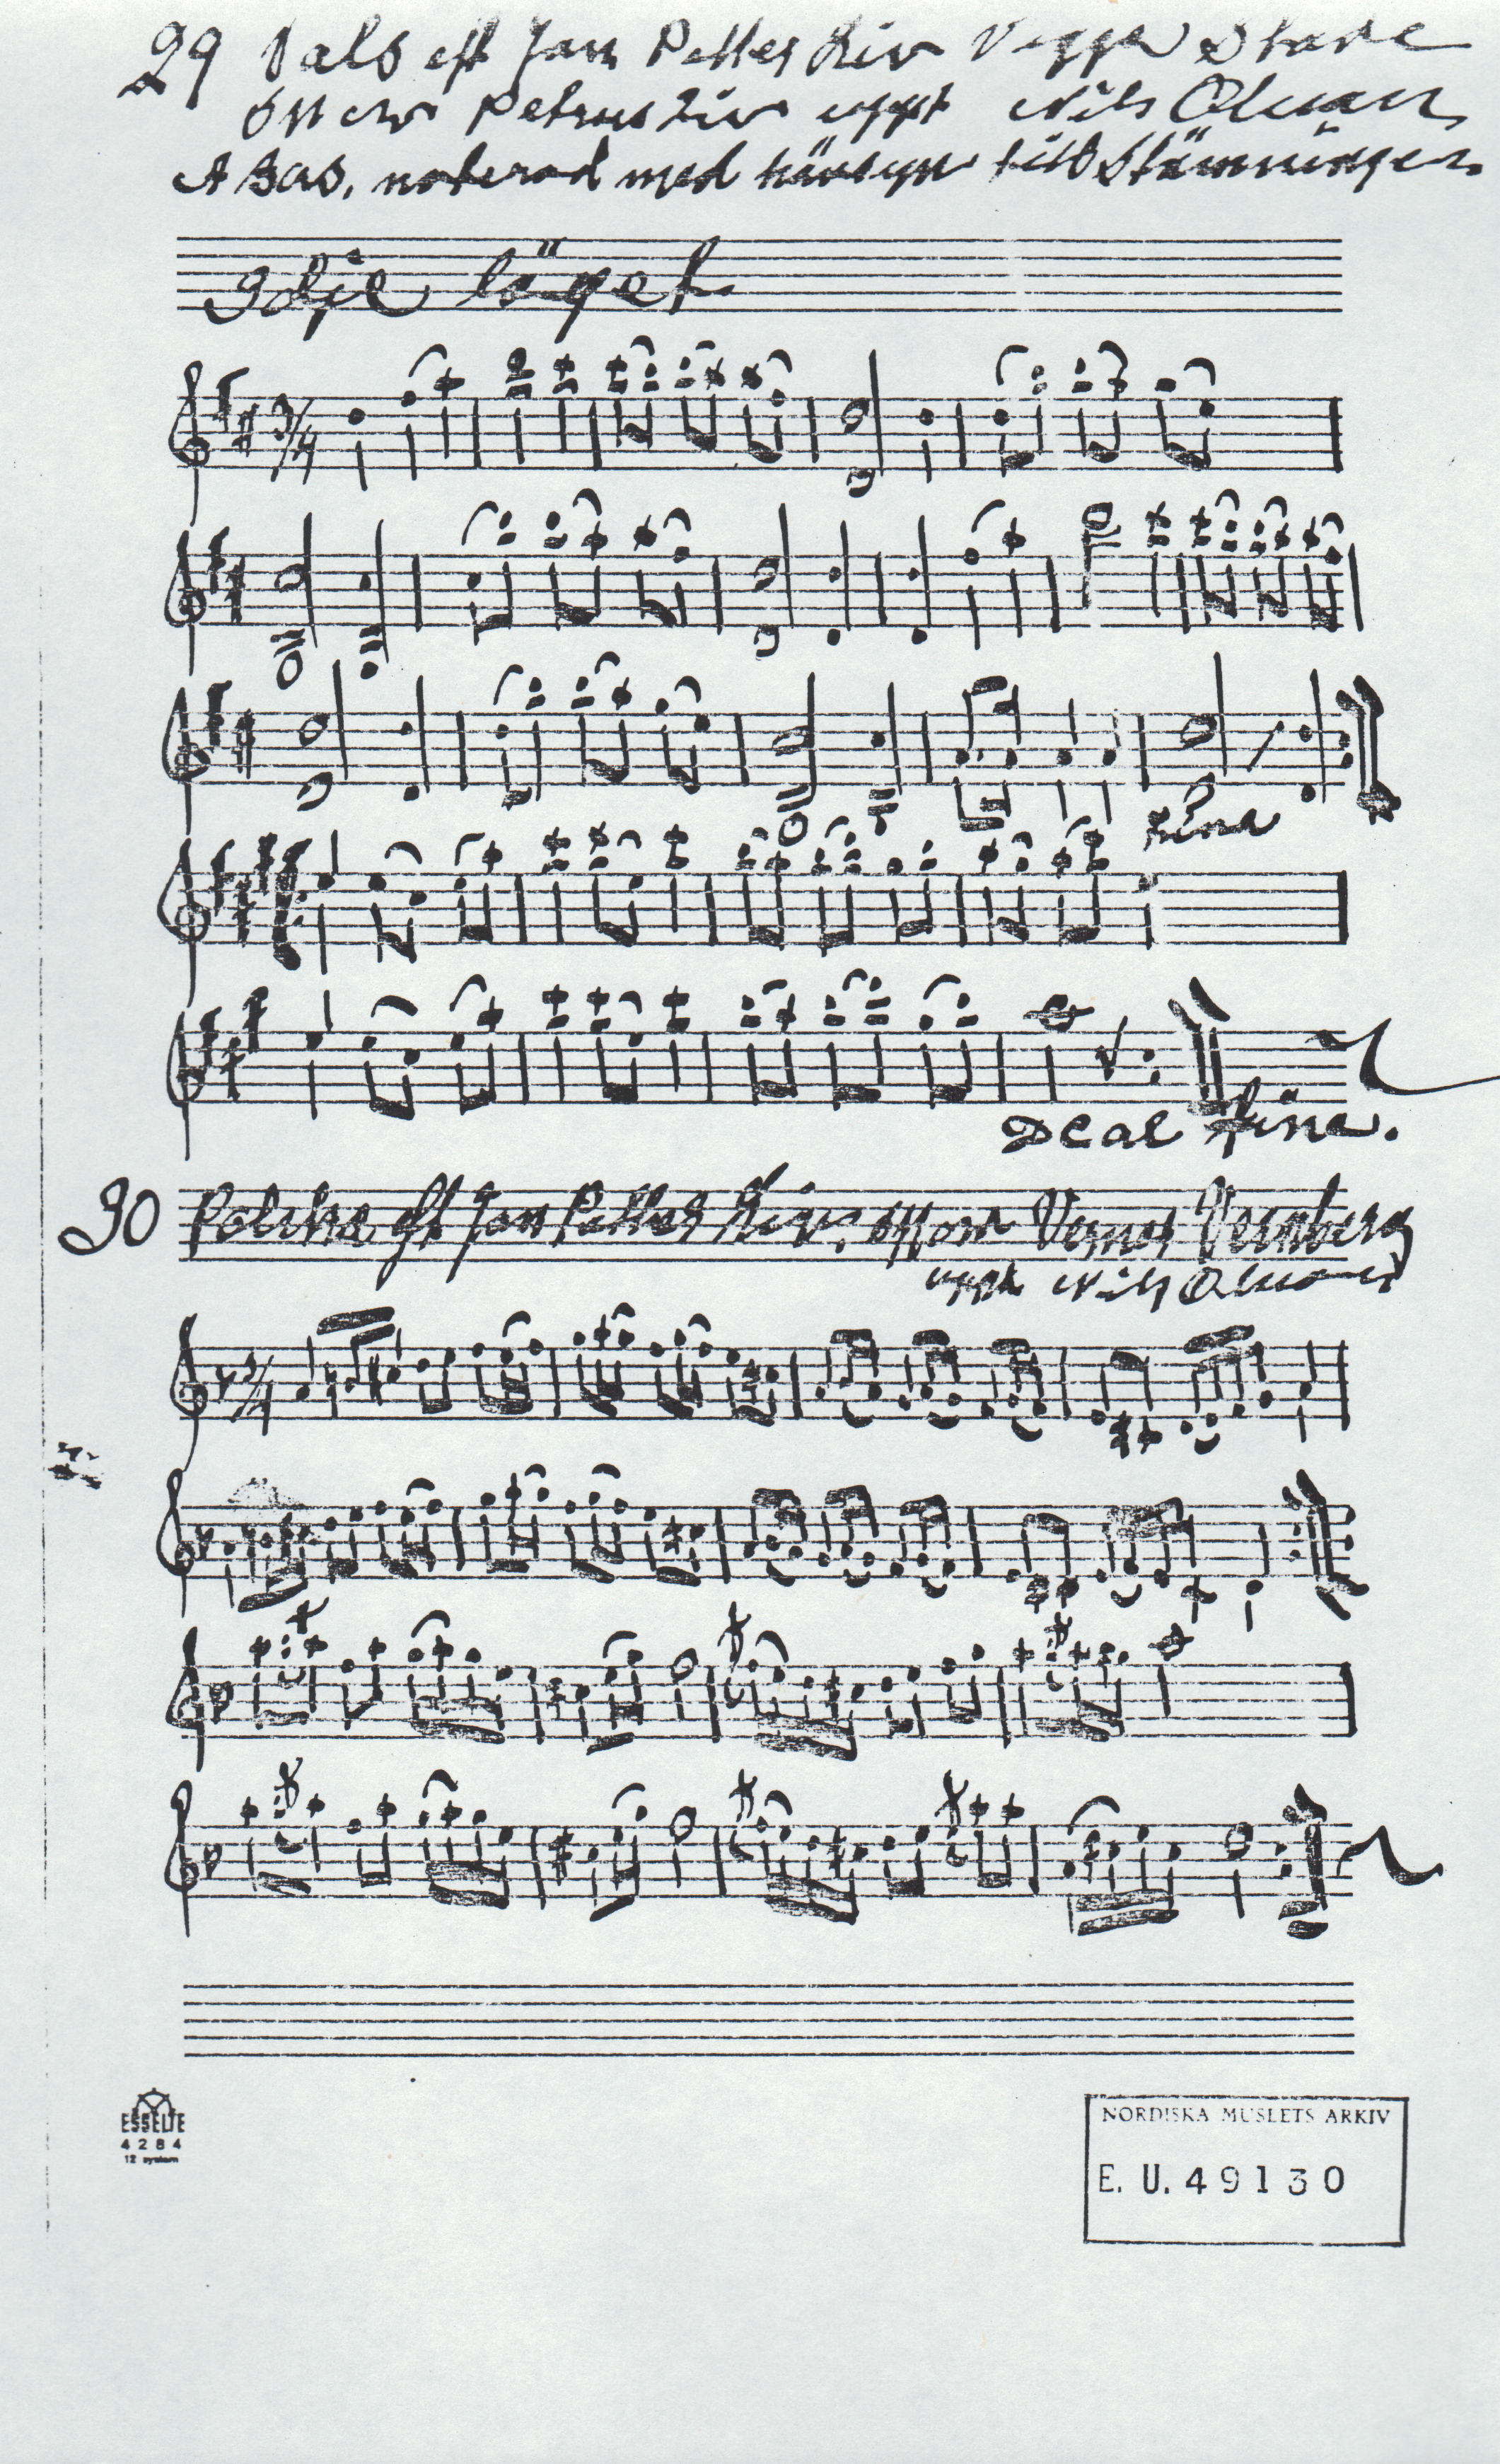 29 Vals eft Jon Petter Liv Vegger Stave
Petrus Liv uppt Nils Oluan
A Bas. noterad med hänsyn till Stämningen
3dje läget.
3/4
Fine
DC al Fine.
30 Polska eft Jon Petter Liv. Verner Vernberg
uppt Nils Oluan
3/4
ESSELTE
4284
12 system
NORDISKA MUSEETS ARKIV
E. U. 49130